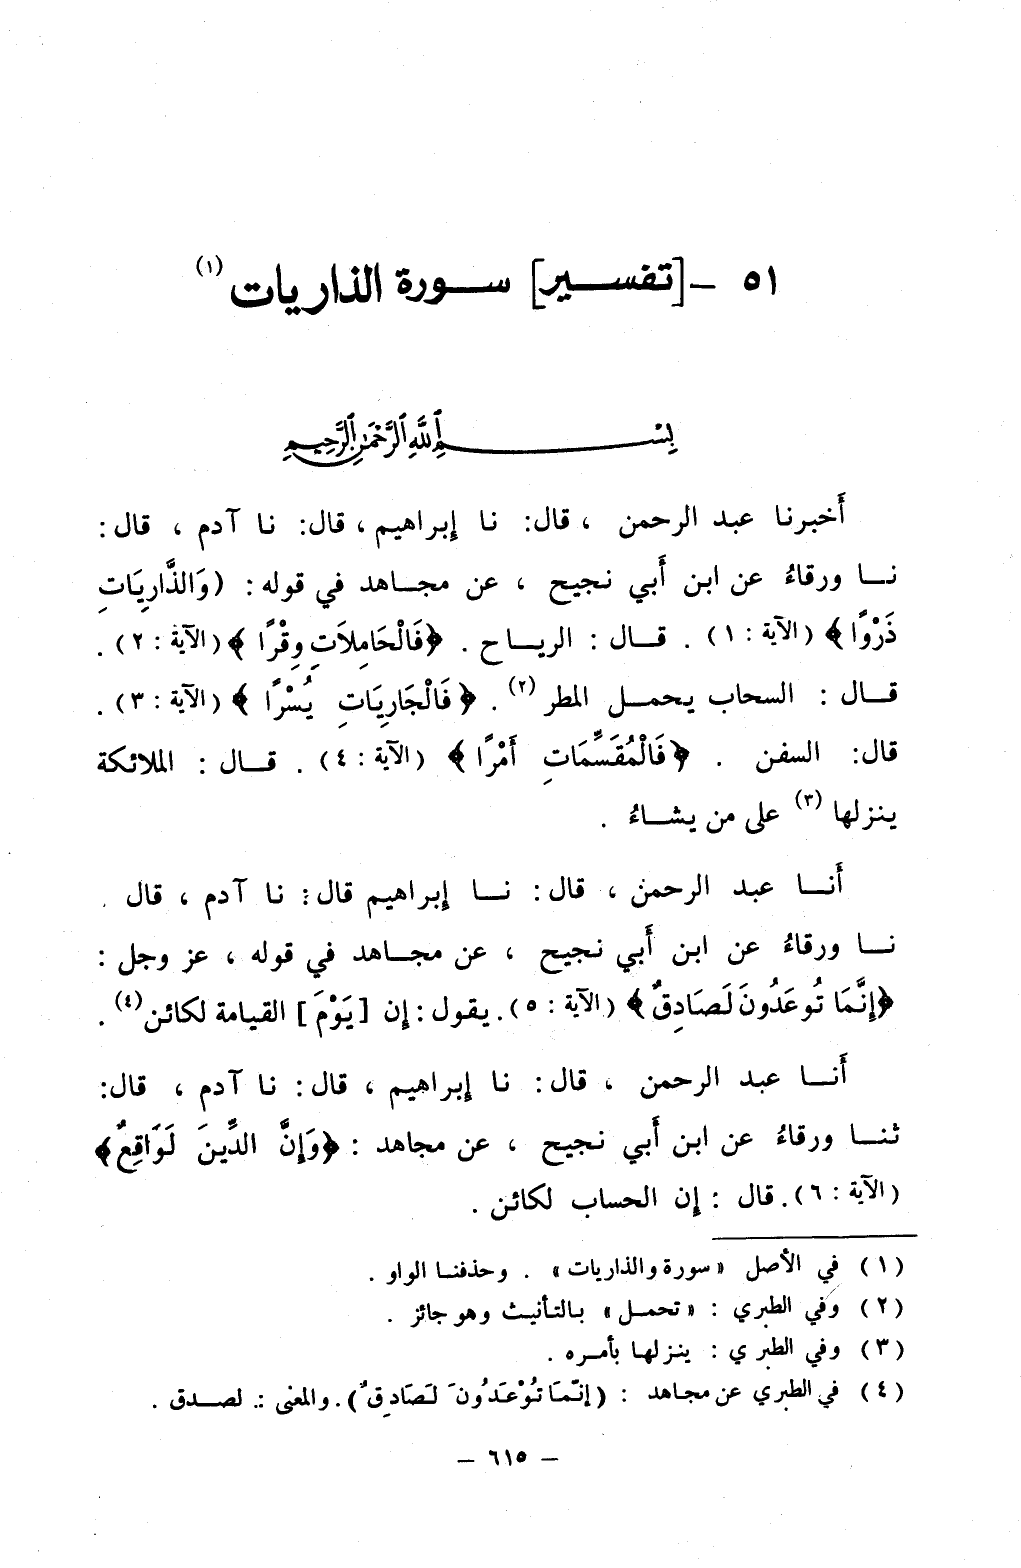 ٥١ ـ [تفسير] سورة الذاريات (١)
بِسْمِ اللَّهِ الرَّحْمَٰنِ الرَّحِيمِ
أَخبرنا عبد الرحمن ، قال: نا إِبراهيم ، قال: نا آدم ، قال :
نا ورقاءُ عن ابن أَبي نجيح ، عن مجاهد في قوله : (وَالذَّارِيَاتِ
ذَرْوًا﴾ (الآية : ١) . قال : الرياح . ﴿فَالْحَامِلَاتِ وِقْرًا ﴾ (الآية : ٢) .
قال : السحاب يحمل المطر (٢) . ﴿ فَالْجَارِيَاتِ يُسْرًا ﴾ (الآية : ٣) .
قال: السفن . ﴿ فَالْمُقَسِّمَاتِ أَمْرًا ﴾ (الآية : ٤) . قال : الملائكة
ينزلها (٣) على من يشاءُ .
أَنا عبد الرحمن ، قال : نا إِبراهيم قال : نا آدم ، قال .
نا ورقاءُ عن ابن أَبي نجيح ، عن مجاهد في قوله ، عز وجل :
﴿إِنَّمَا تُوعَدُونَ لَصَادِقٌ ﴾ (الآية : ٥) . يقول : إِن [يَوْمَ] القيامة لكائن (٤) .
أَنا عبد الرحمن ، قال : نا إِبراهيم ، قال : نا آدم ، قال:
ثنا ورقاءُ عن ابن أَبي نجيح ، عن مجاهد : ﴿وَإِنَّ الدِّينَ لَوَاقِعٌ﴾
(الآية : ٦) . قال : إِن الحساب لكائن .
(١) في الأصل « سورة والذاريات » . وحذفنا الواو .
(٢) وفي الطبري : « تحمل » بالتأنيث وهو جائز .
(٣) وفي الطبري : ينزلها بأمره .
(٤) في الطبري عن مجاهد : (إِنَّمَا تُوْعَدُونَ لَصَادِقٌ) . والمعنى : لصدق .
ـ ٦١٥ ـ